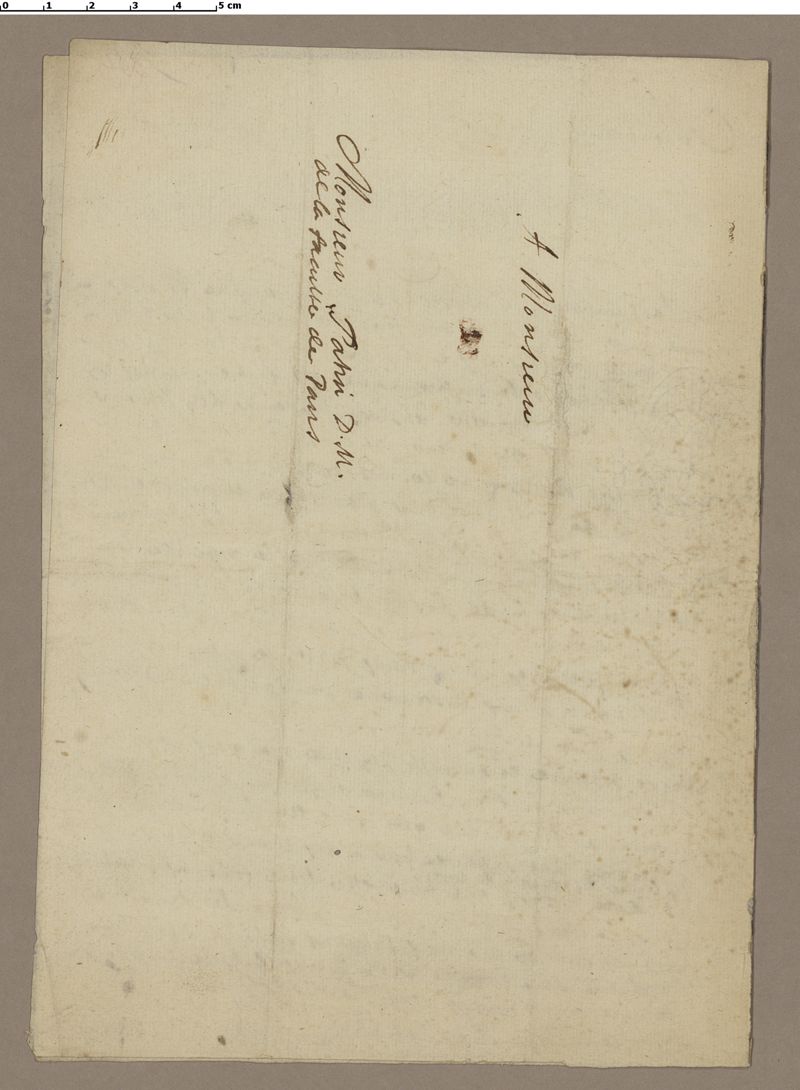 0 1 2 3 4 5 cm
A Monsieur
Monsieur Patin D. M.
de la faculte de Paris